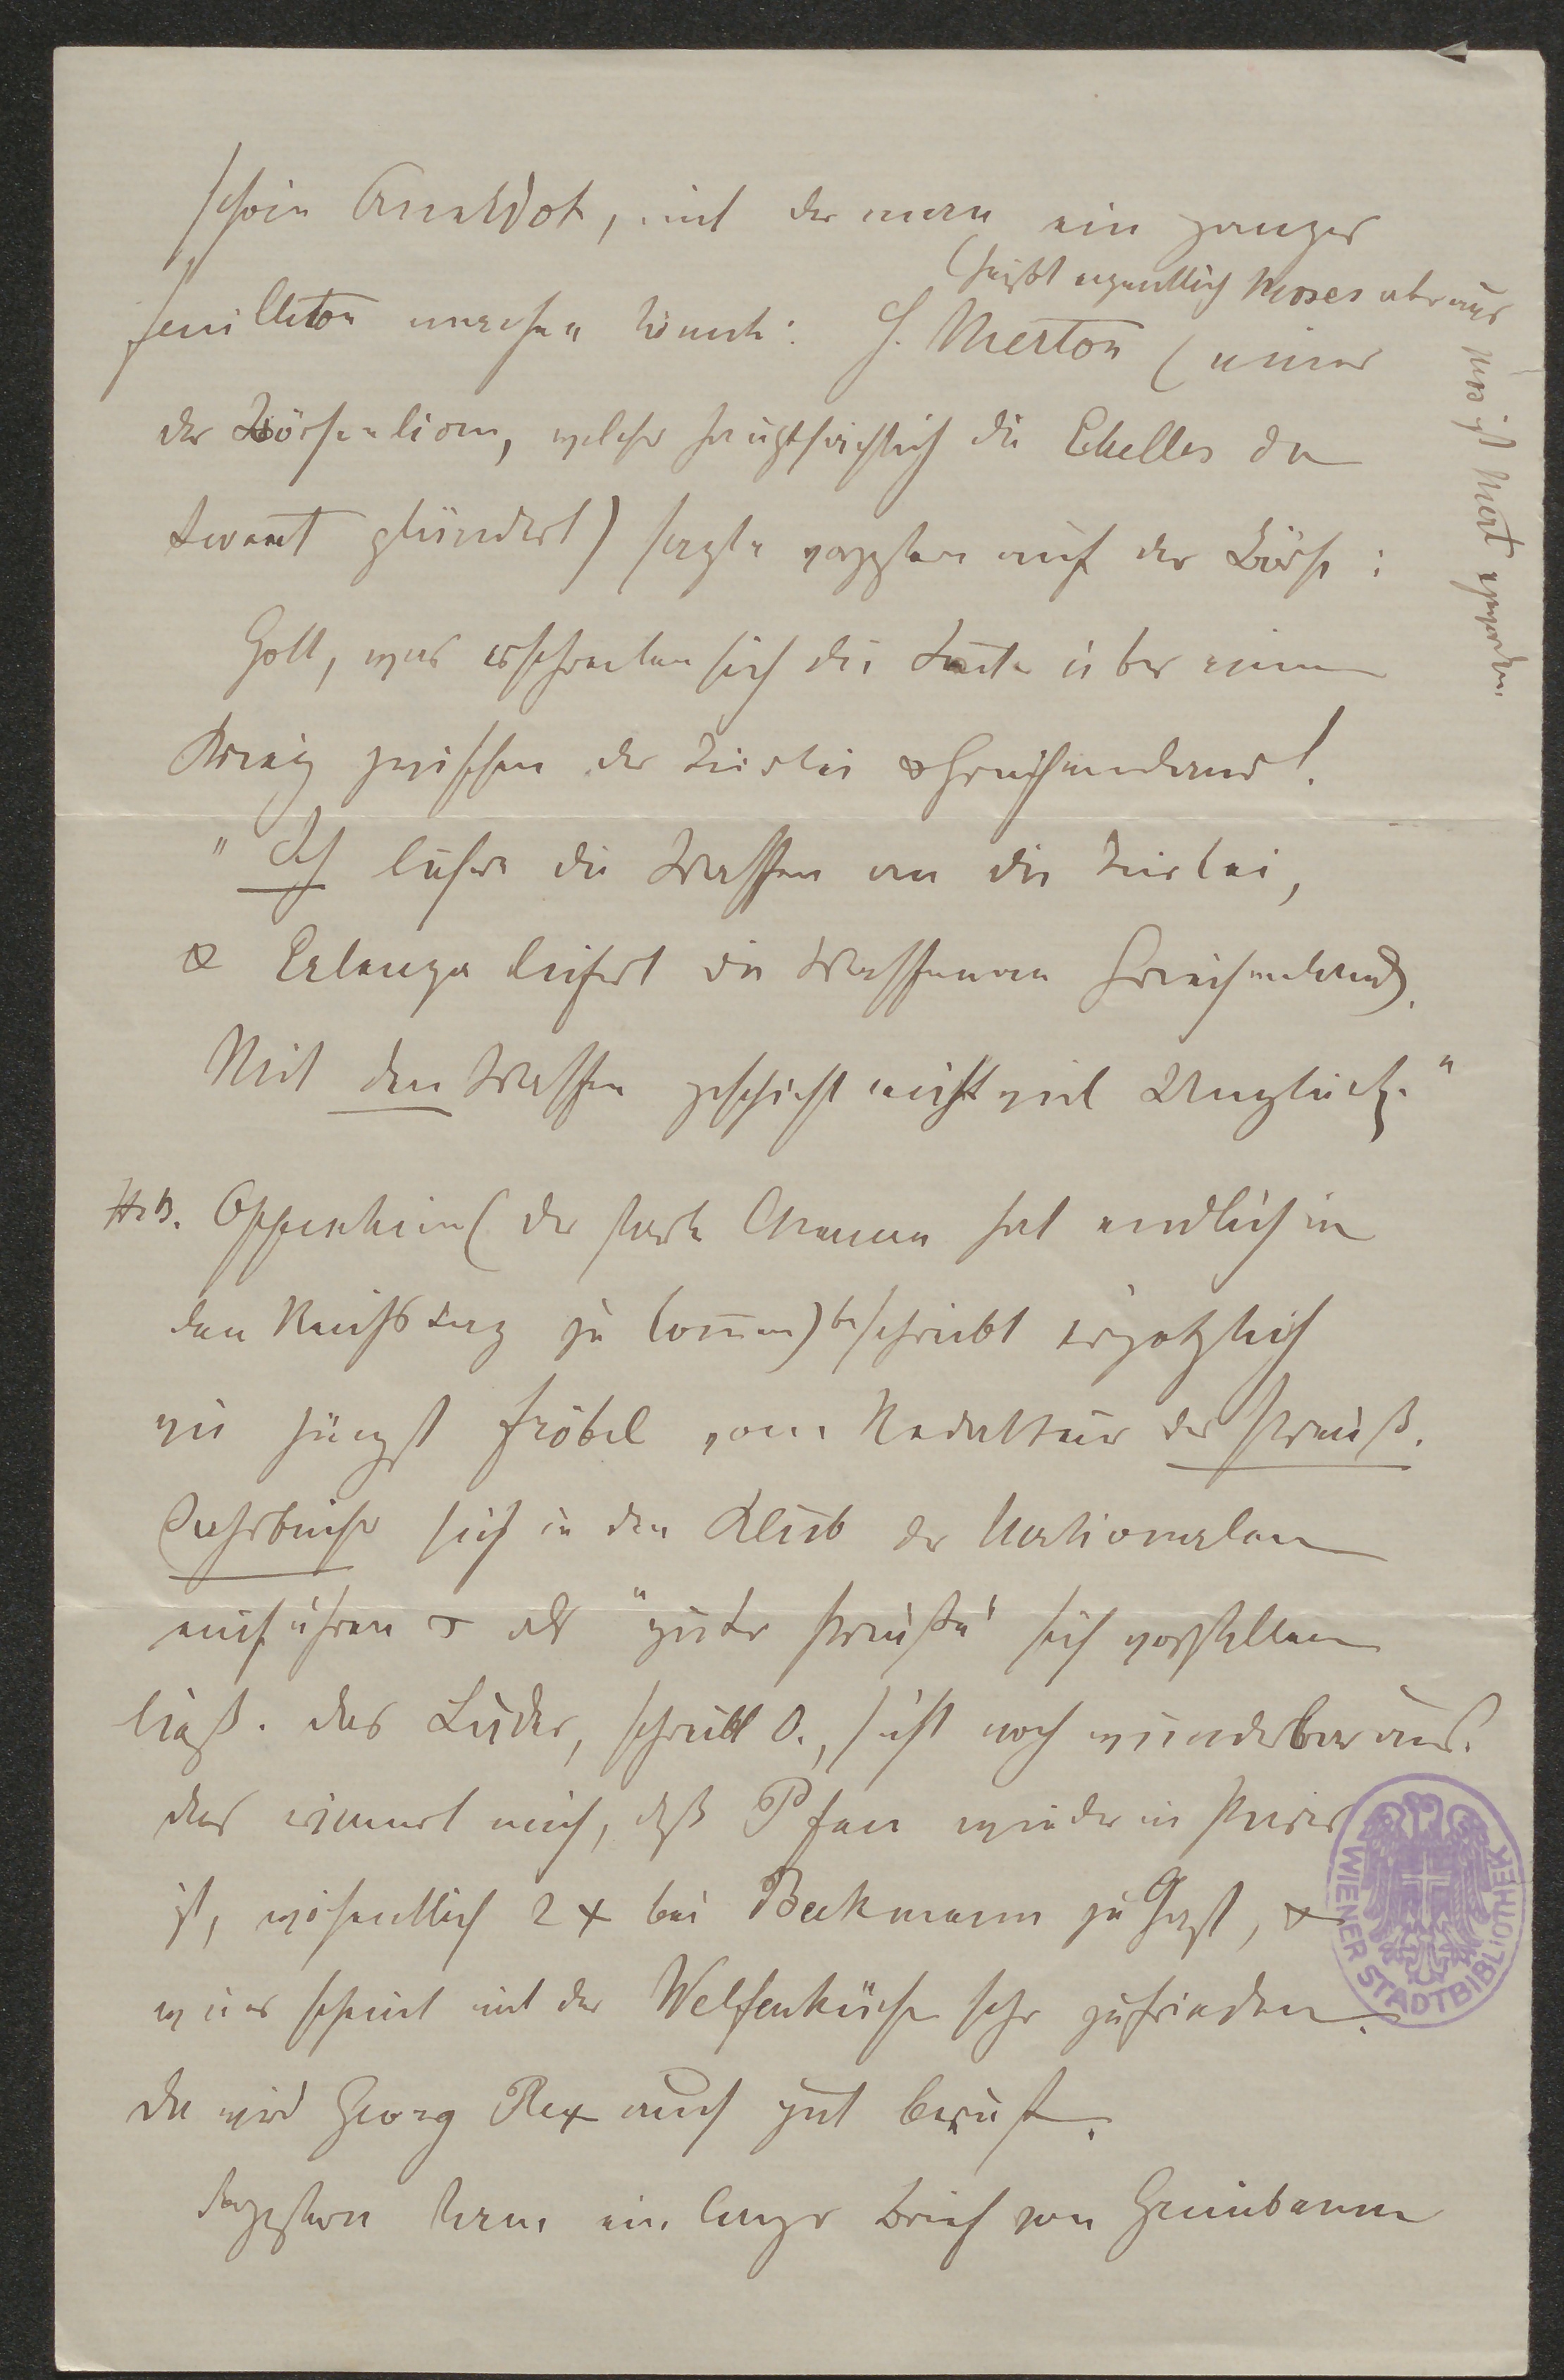 schöne Anekdot, mit der man ein ganzes
(heißt eigentlich Moses aber aus
Feuilleton machen könnte: H. Merton (einer
Mos ist Mert geworden.
der Börsenlions, welcher hauptsächlich die Echelles du
Levant plündert) sagte gestern auf der Börse:
Gott, was erschrecken sich die Leute über einen
Krieg zwischen der Türkei & Griechenland!
"Ich liefre die Waffen an die Türkei,
& Erlanger liefert die Waffen an Griechenland.
Mit den Waffen geschieht nicht viel Unglück."
H. B. Oppenheim (der hat endlich in
den Reichstag zu kommen) beschreibt ergötzlich
wie jüngst Fröbel vom Redakteur der Preuß.
Jahrbücher sich in den Klub der Nationalen
einführen & als "guter Preuße" sich vorstellen
ließ. Das Luder, schreibt O., sieht noch wunderbar aus.
Das erinnert mich, daß Pfau wieder in Paris
ist, wöchentlich 2 x bei Beckmann zu Gast, &
scheint mit der Welfenküche sehr zufrieden.
Da wird Georg Rex auch gut
Vorgestern kam ein langer Brief von Grünbaum
WIENER STADTBIBLIOTHEK